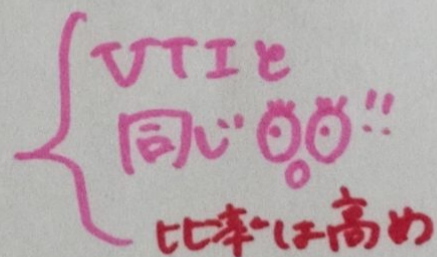 VTIと
同じ!!
比率は高め